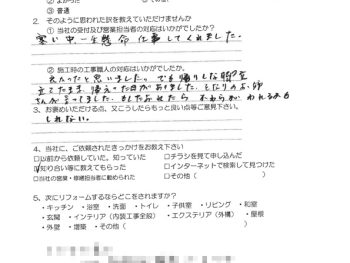 ② まあまあ
③ 普通
2. そのように思われた訳を教えていただけませんか
① 当社の受付及び営業担当者の対応はいかがでしたか?
寒い中、一生懸命仕事してくれました。
② 施工時の工事職人の対応はいかがでしたか?
良かったと思いました。でも帰りしな脚立
立てたまま、帰えった日がありました。となりのお姉
さんが言ってました。もしたおれたら
しれない。
3. お褒めいただける点、又こうしたらもっと良い点等ご意見下さい。
4. 当社に、ご依頼されたきっかけをお教え下さい
□以前から依頼していた。知っていた □チラシを見て申し込んだ
□知り合い等に教えてもらった □インターネットで検索して見つけた
□当社の営業・修繕担当者に勧められた □その他(
5. 次にリフォームするならどこをされますか?
・キッチン ・浴室 ・洗面 ・トイレ ・子供室 ・リビング ・和室
・玄関 ・インテリア(内装工事全般) ・エクステリア(外構) ・屋根
・外壁 ・増築 ・その他(